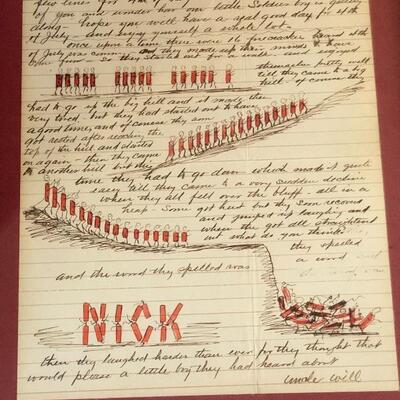 of you and wonder how our little Soldier boy is getting
along - hope you will have a real good day for 4th
of July - and enjoy yourself a whole lot -
once upon a time there were 21 firecrackers heard 4th
of July was coming and they made up their minds to have
some fun - So they started out for a walk - and enjoyed
themselves pretty well
till they came to a big
hill - of course they
had to go up the big hill and it made them
very tired, but they had started out to have
a good time and of course they soon
got rested after reaching the
top of the hill and started
on again - then they came
to another hill but this
time they had to go down which made it quite
easy till they came to a very sudden decline
where they all fell over the bluff all in a
heap. Some got hurt but they soon recovered
and jumped up laughing and
when they got all straightened
out what do you think
they spelled
a word
and the word they spelled was
NICK
then they laughed harder than ever for they thought that
would please a little boy they had heard about
Uncle Will